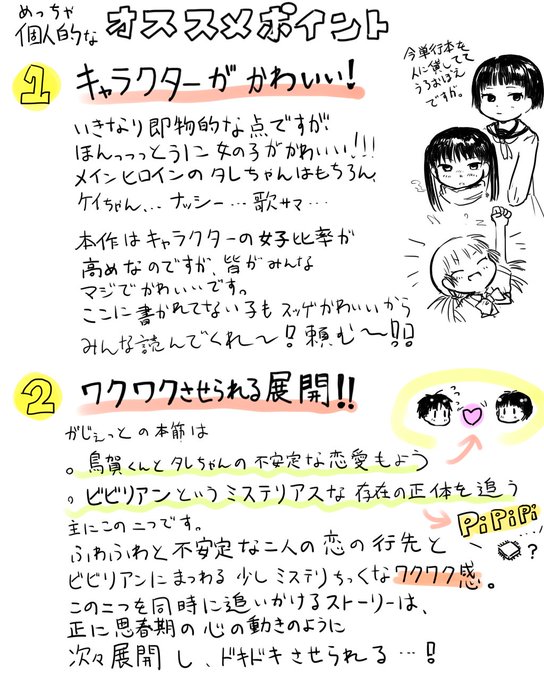 めっちゃ
個人的な オススメポイント
1 キャラクターが かわいい!
今単行本を
人に貸してて
うろおぼえ
ですが。
いきなり即物的な点ですが、
ほんっっっとうに女の子がかわいい!!!
メインヒロインのタレちゃんはもちろん、
ケイちゃん、… ナッシー… 歌サマ…
本作はキャラクターの女子比率が
高めなのですが、皆がみんな
マジでかわいいです。
ここに書かれてない子もスッゲかわいいから
みんな読んでくれ〜!頼む〜!!
2 ワクワクさせられる展開!!
がじぇっとの本節は
。鳥賀くんとタレちゃんの不安定な恋愛もよう
。ビビリアンというミステリアスな存在の正体を追う
主にこの二つです。
PiPiPi
…?
ふわふわと不安定な二人の恋の行先と
ビビリアンにまつわる少しミステリちっくなワクワク感。
この二つを同時に追いかけるストーリーは、
正に思春期の心の動きのように
次々展開し、ドキドキさせられる…!